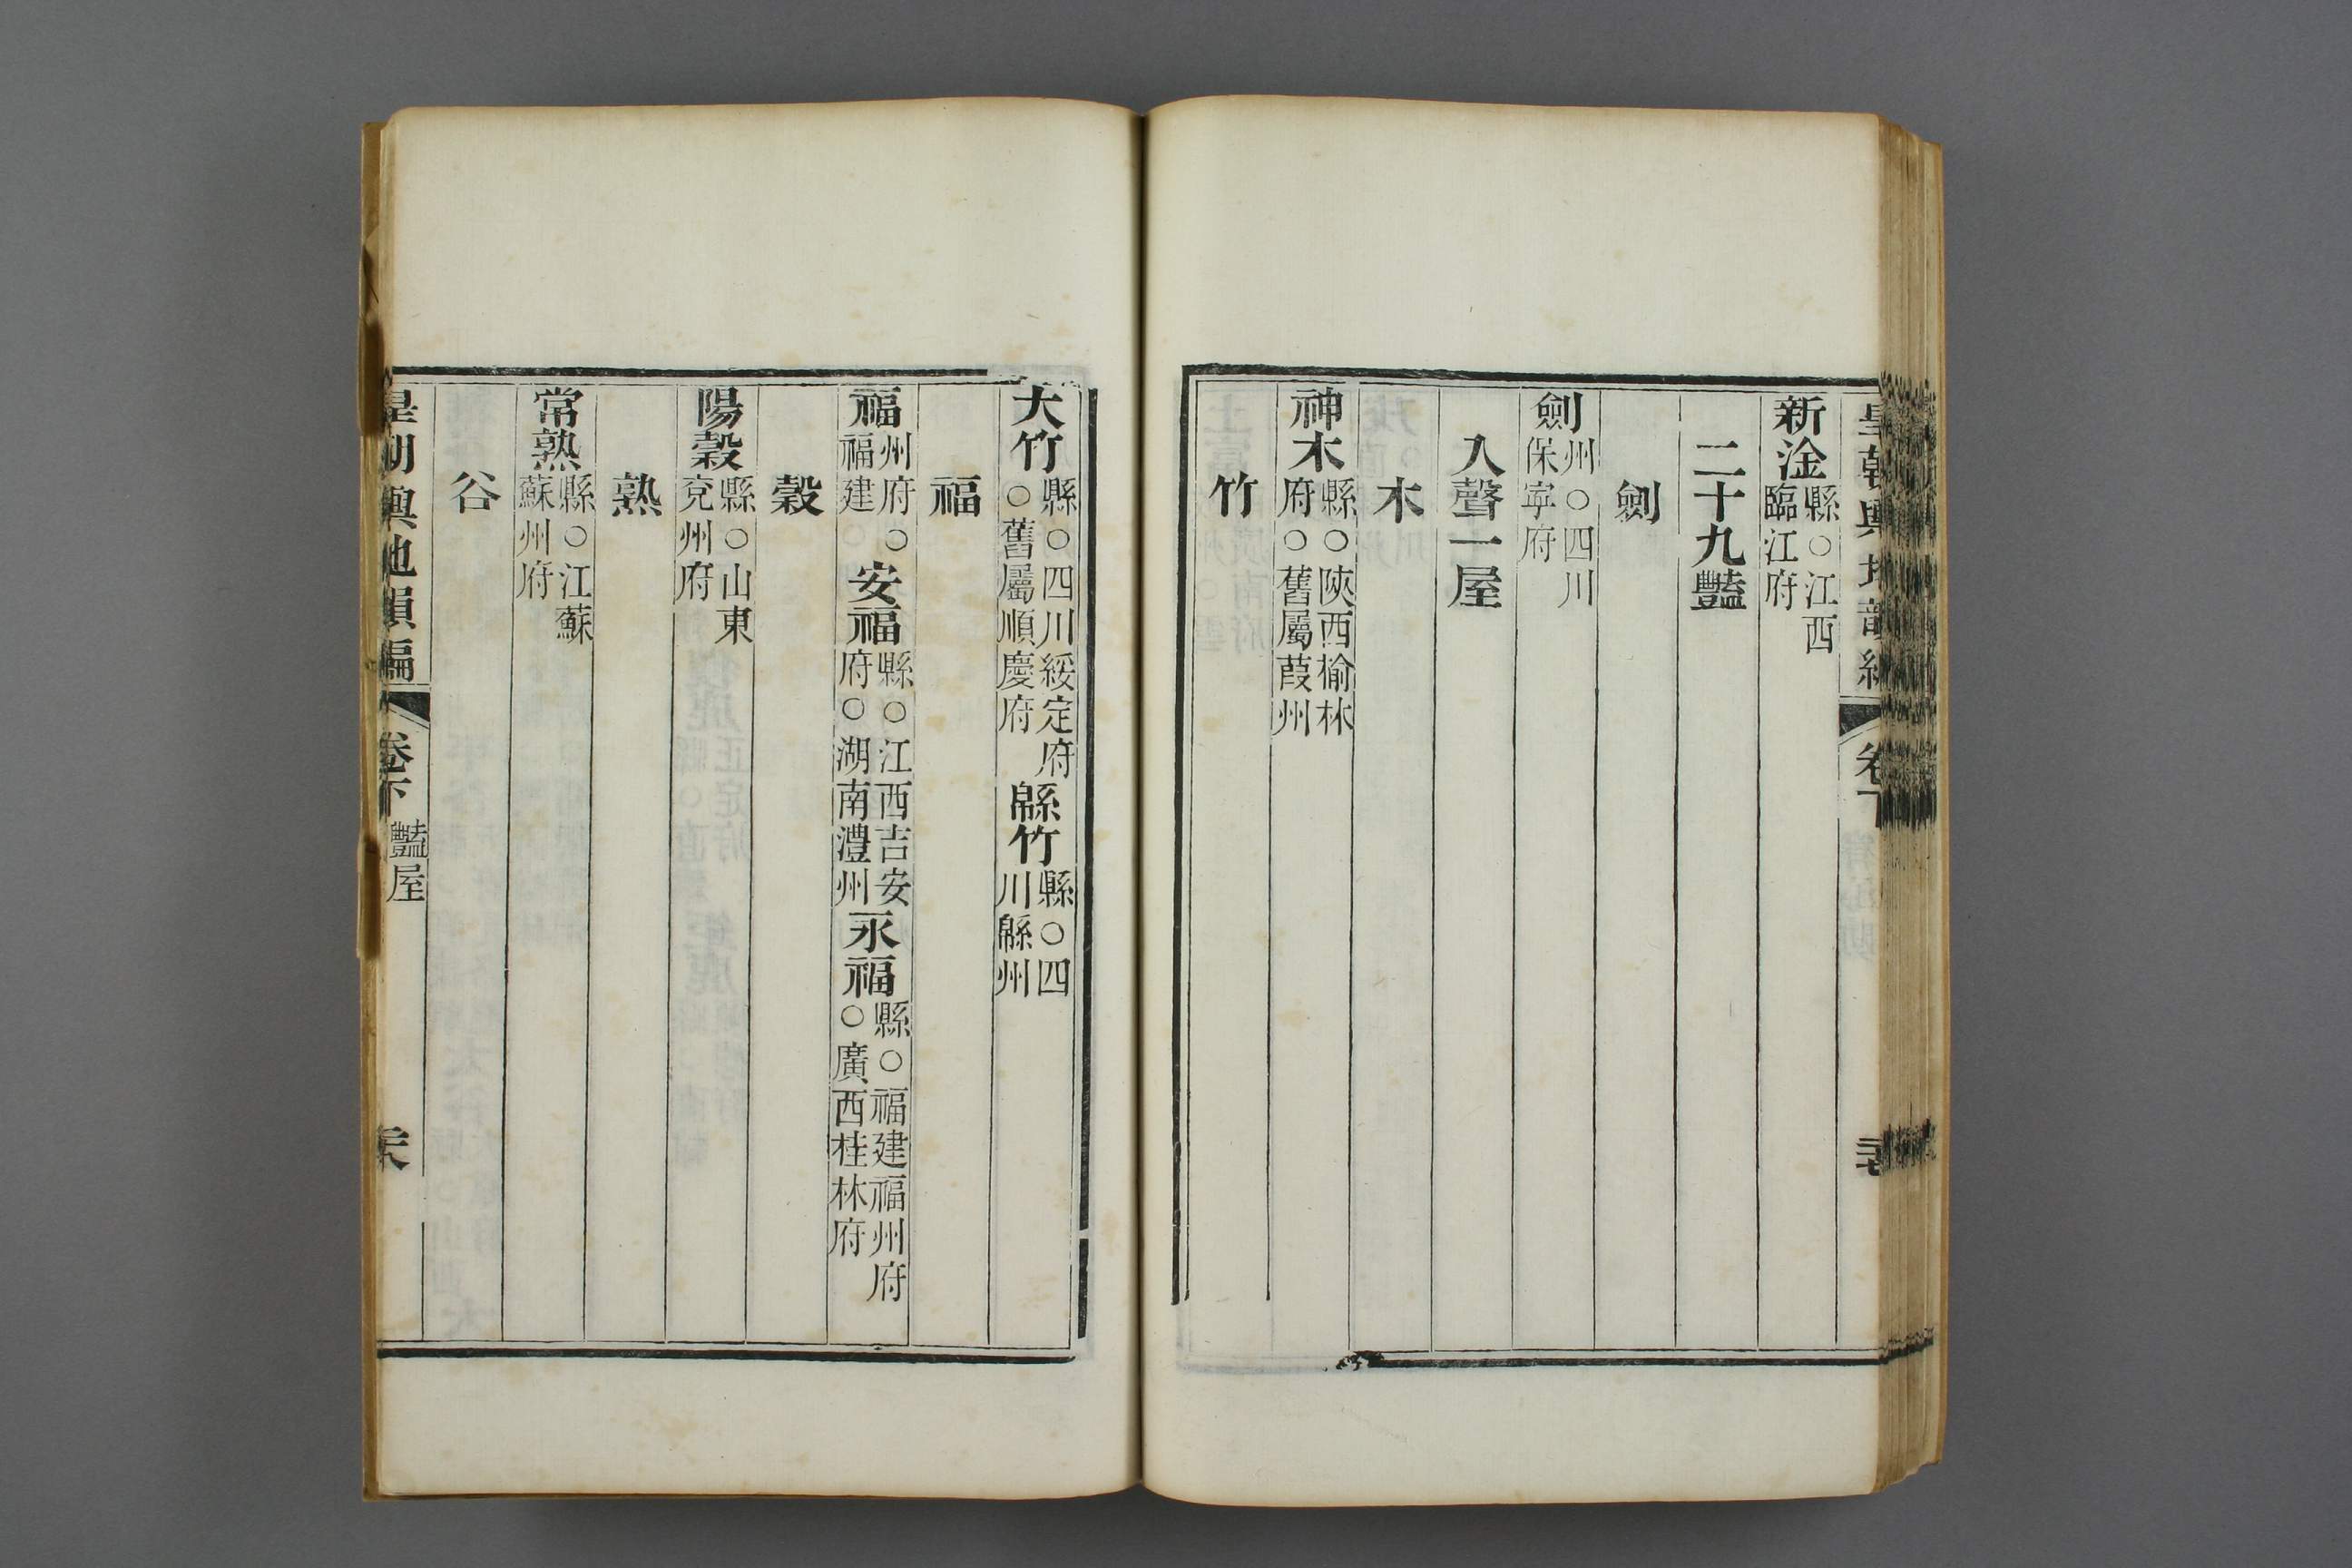 新淦縣○江西臨江府
二十九豔
劍
劍州○四川保寧府
入聲一屋
木
神木縣○陝西榆林府○舊屬葭州
竹
大竹縣○四川綏定府○舊屬順慶府緜竹縣○四川緜州
福
福州府○福建○安福縣○江西吉安府○湖南澧州永福縣○福建福州府○廣西桂林府
穀
陽穀縣○山東兖州府
熟
常熟縣○江蘇蘇州府
谷
皇朝輿地韻編
卷下
豔屋